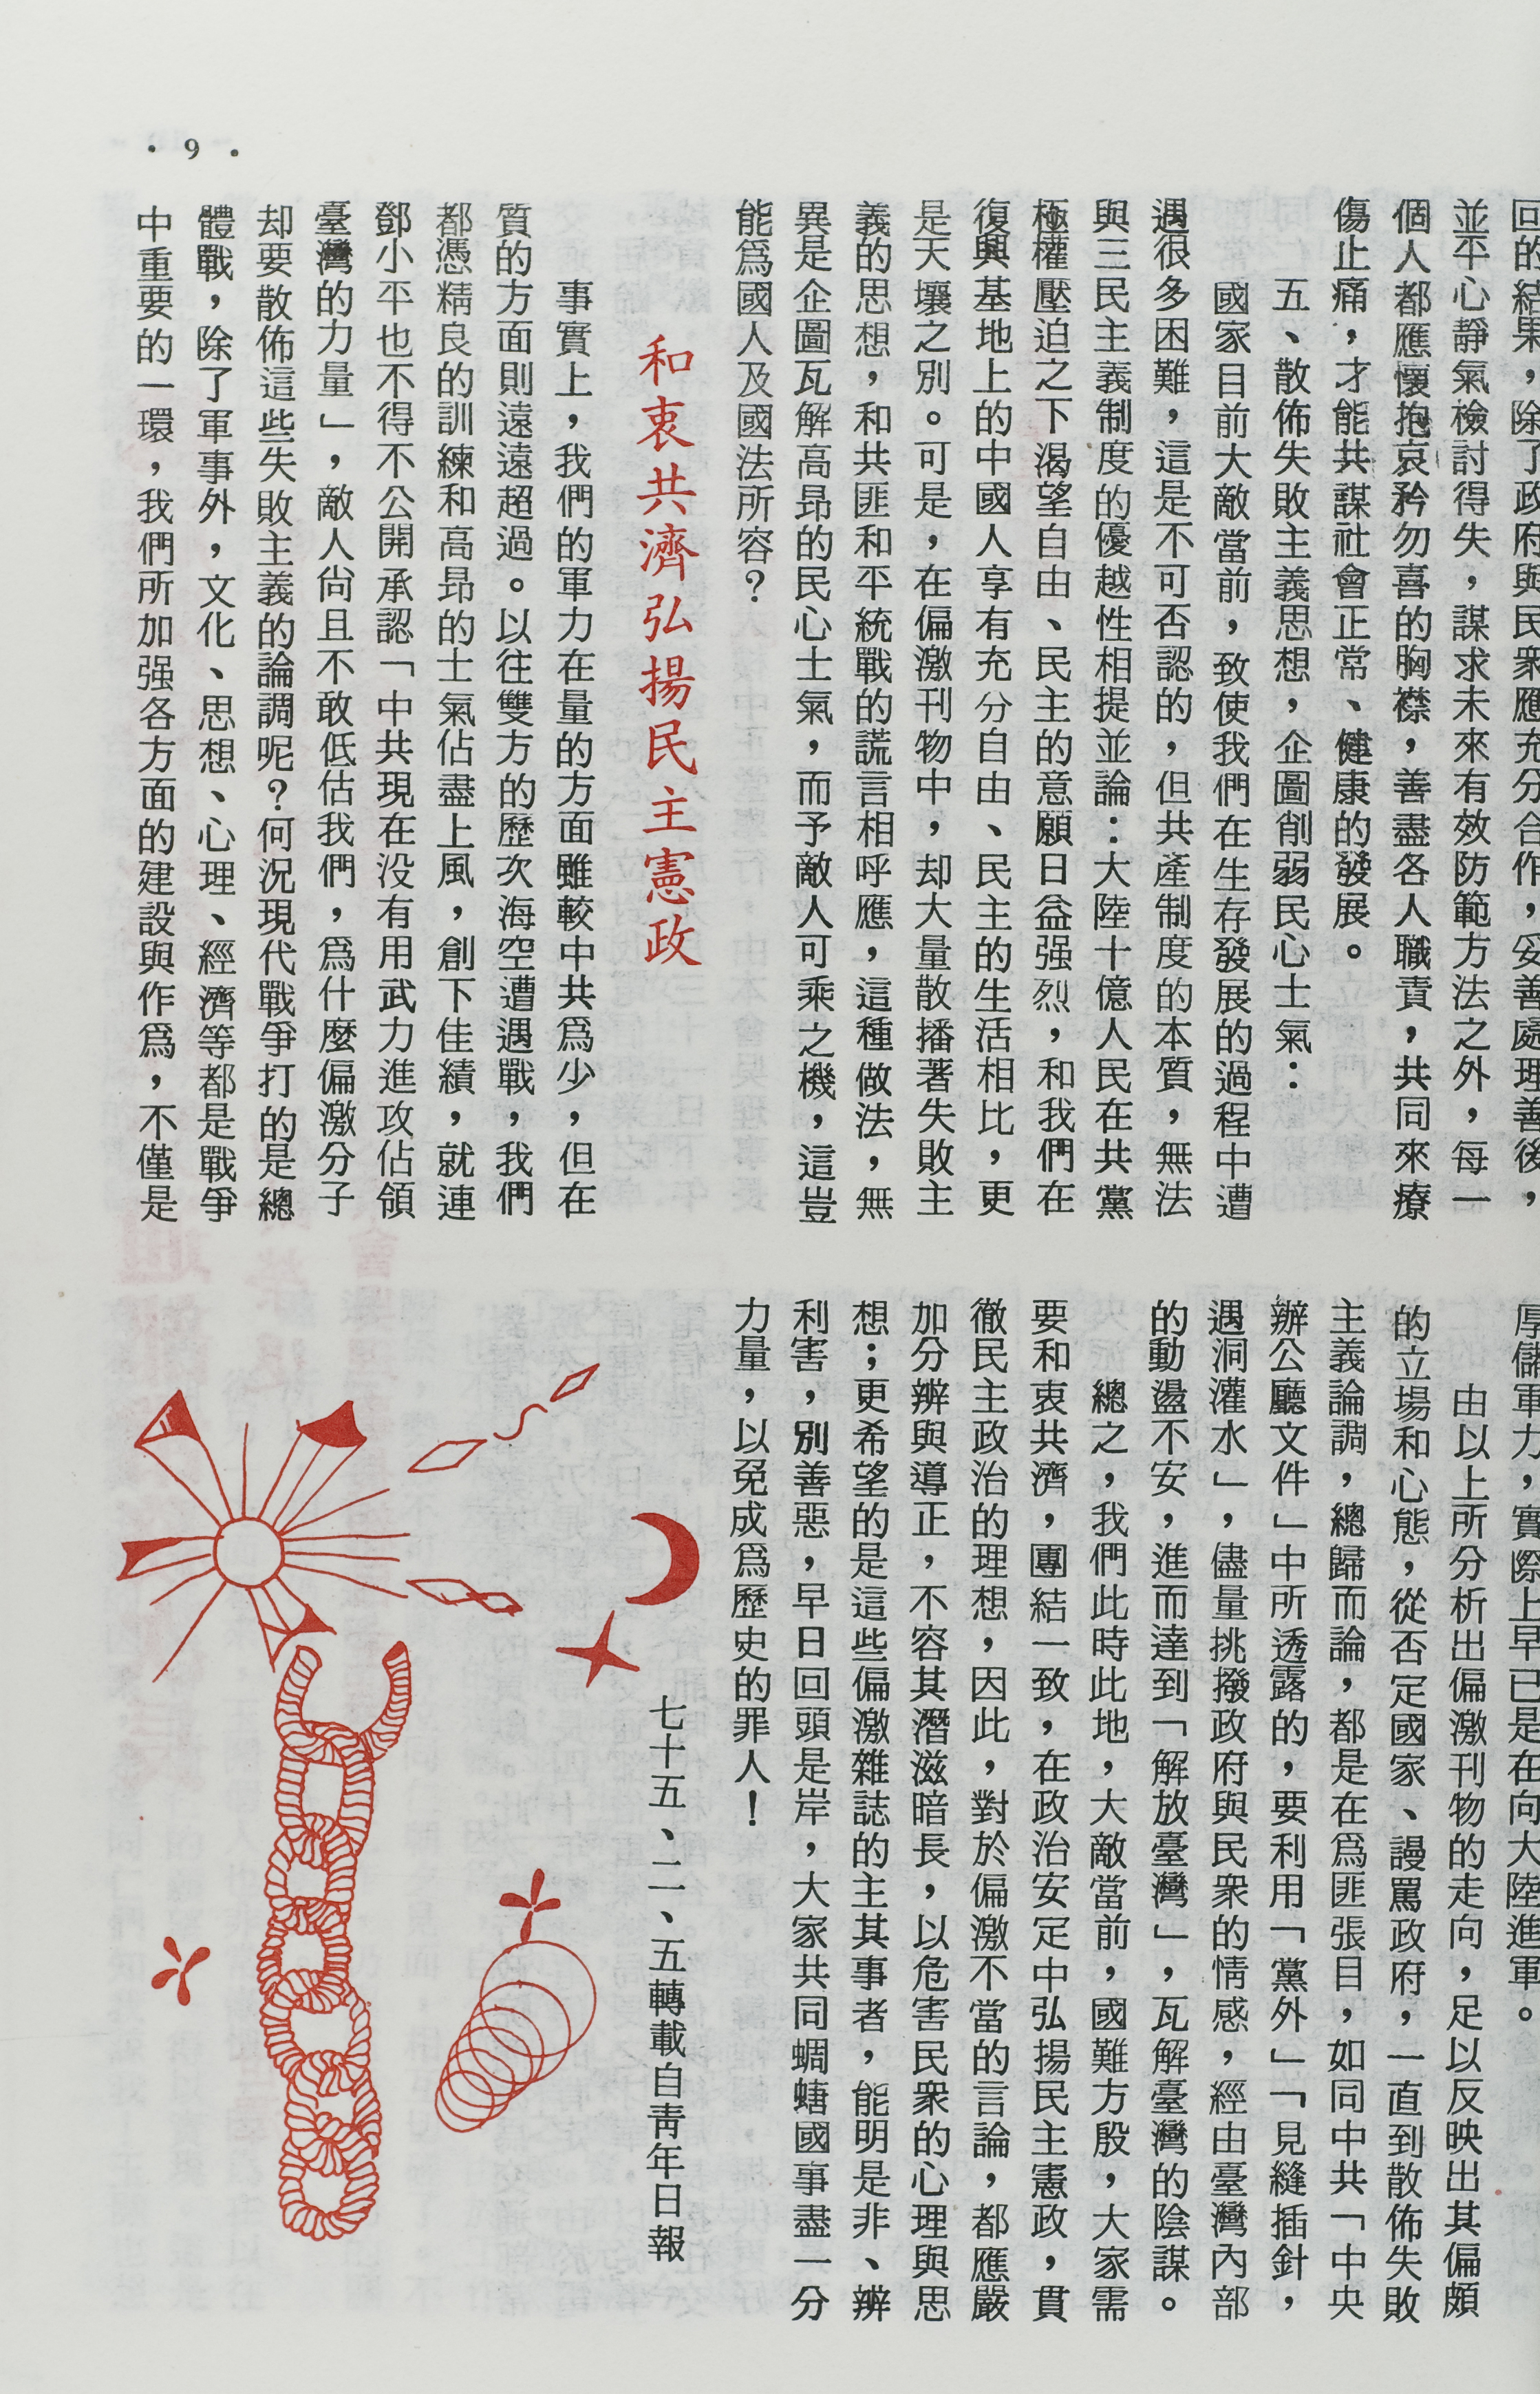 ・9・
回的結果，除了政府與民衆應充分合作，妥善處理善後，
並平心靜氣檢討得失，謀求未來有效防範方法之外，每一
個人都應懷抱哀矜勿喜的胸襟，善盡各人職責，共同來療
傷止痛，才能共謀社會正常、健康的發展。
五、散佈失敗主義思想，企圖削弱民心士氣：
國家目前大敵當前，致使我們在生存發展的過程中遭
遇很多困難，這是不可否認的，但共產制度的本質，無法
與三民主義制度的優越性相提並論：大陸十億人民在共黨
極權壓迫之下渴望自由、民主的意願日益强烈，和我們在
復興基地上的中國人享有充分自由、民主的生活相比，更
是天壤之別。可是，在偏激刊物中，却大量散播著失敗主
義的思想，和共匪和平統戰的謊言相呼應，這種做法，無
異是企圖瓦解高昂的民心士氣，而予敵人可乘之機，這豈
能爲國人及國法所容？
和衷共濟弘揚民主憲政
事實上，我們的軍力在量的方面雖較中共爲少，但在
質的方面則遠遠超過。以往雙方的歷次海空遭遇戰，我們
都憑精良的訓練和高昂的士氣佔盡上風，創下佳績，就連
鄧小平也不得不公開承認「中共現在没有用武力進攻佔領
臺灣的力量」，敵人尙且不敢低估我們，爲什麼偏激分子
却要散佈這些失敗主義的論調呢？何況現代戰爭打的是總
體戰，除了軍事外，文化、思想、心理、經濟等都是戰爭
中重要的一環，我們所加强各方面的建設與作爲，不僅是
厚儲軍力，實際上早已是在向大陸進軍。
由以上所分析出偏激刊物的走向，足以反映出其偏頗
的立場和心態，從否定國家、謾罵政府，一直到散佈失敗
主義論調，總歸而論，都是在爲匪張目，如同中共「中央
辦公廳文件」中所透露的，要利用「黨外」「見縫插針，
遇洞灌水」，儘量挑撥政府與民衆的情感，經由臺灣內部
的動盪不安，進而達到「解放臺灣」，瓦解臺灣的陰謀。
總之，我們此時此地，大敵當前，國難方殷，大家需
要和衷共濟，團結一致，在政治安定中弘揚民主憲政，貫
徹民主政治的理想，因此，對於偏激不當的言論，都應嚴
加分辨與導正，不容其潛滋暗長，以危害民衆的心理與思
想；更希望的是這些偏激雜誌的主其事者，能明是非、辨
利害，別善惡，早日回頭是岸，大家共同蜩螗國事盡一分
力量，以免成爲歷史的罪人！
七十五、二、五轉載自靑年日報